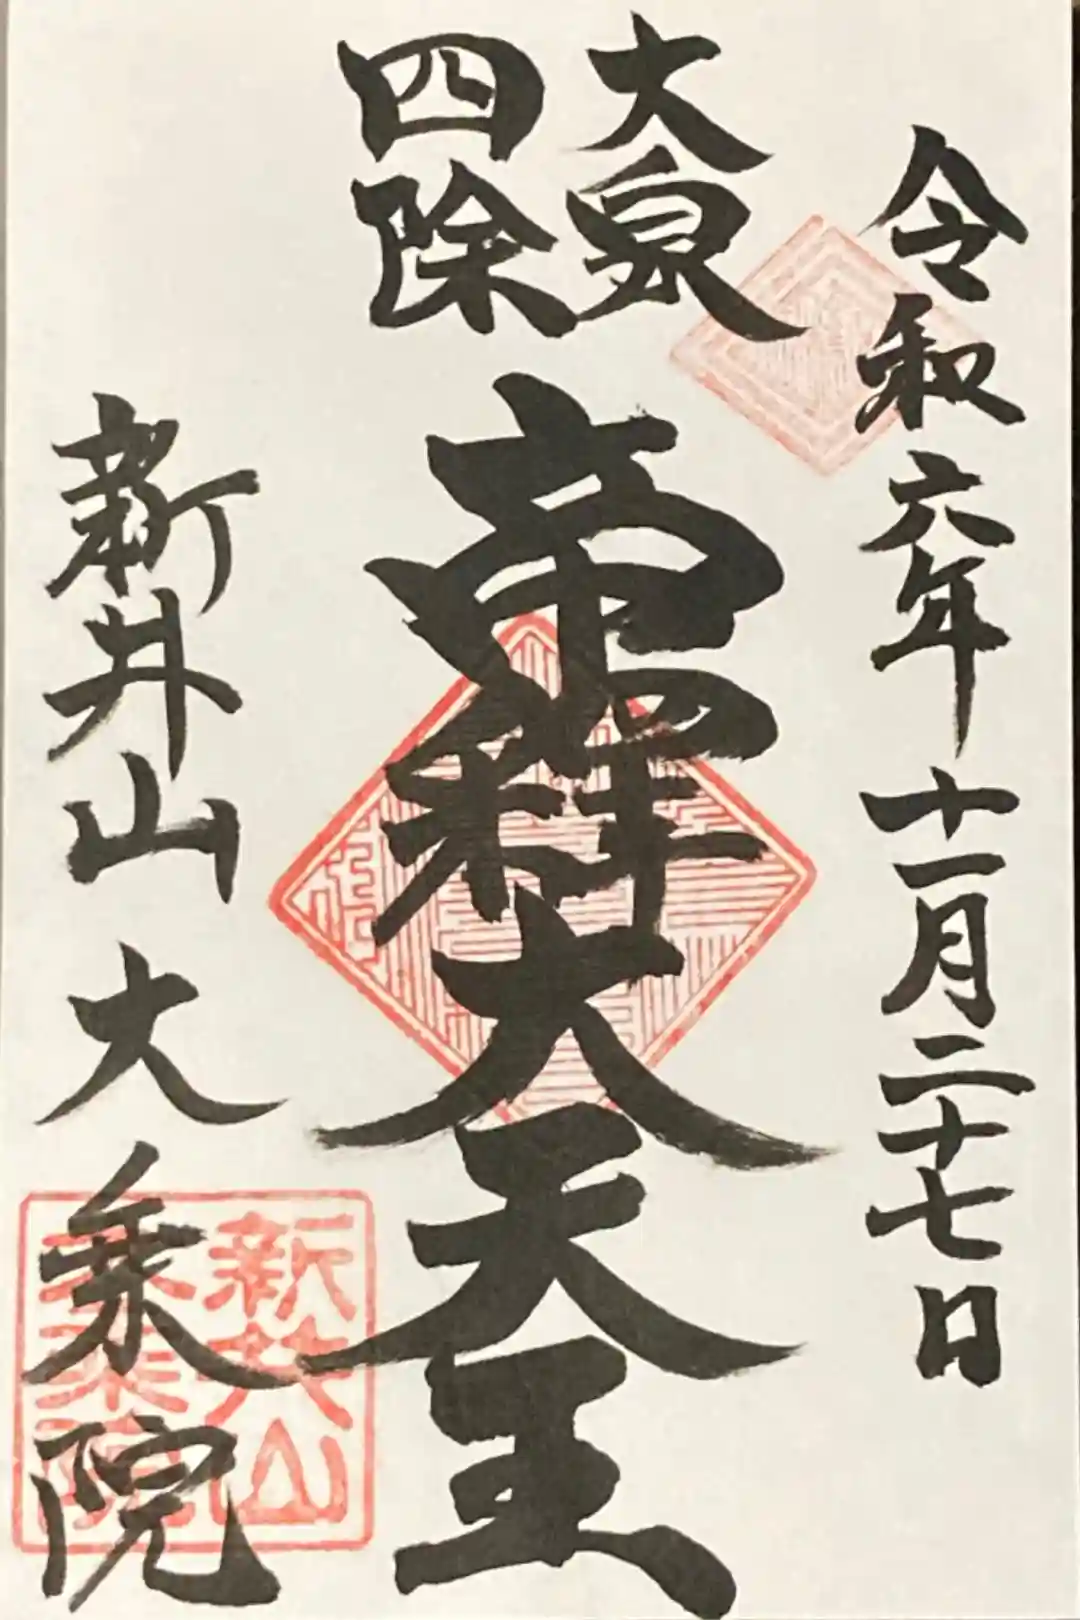 令和六年十一月二十七日
大泉
四除
帝釈大天王
新井山大乗院
新井山
大乗院